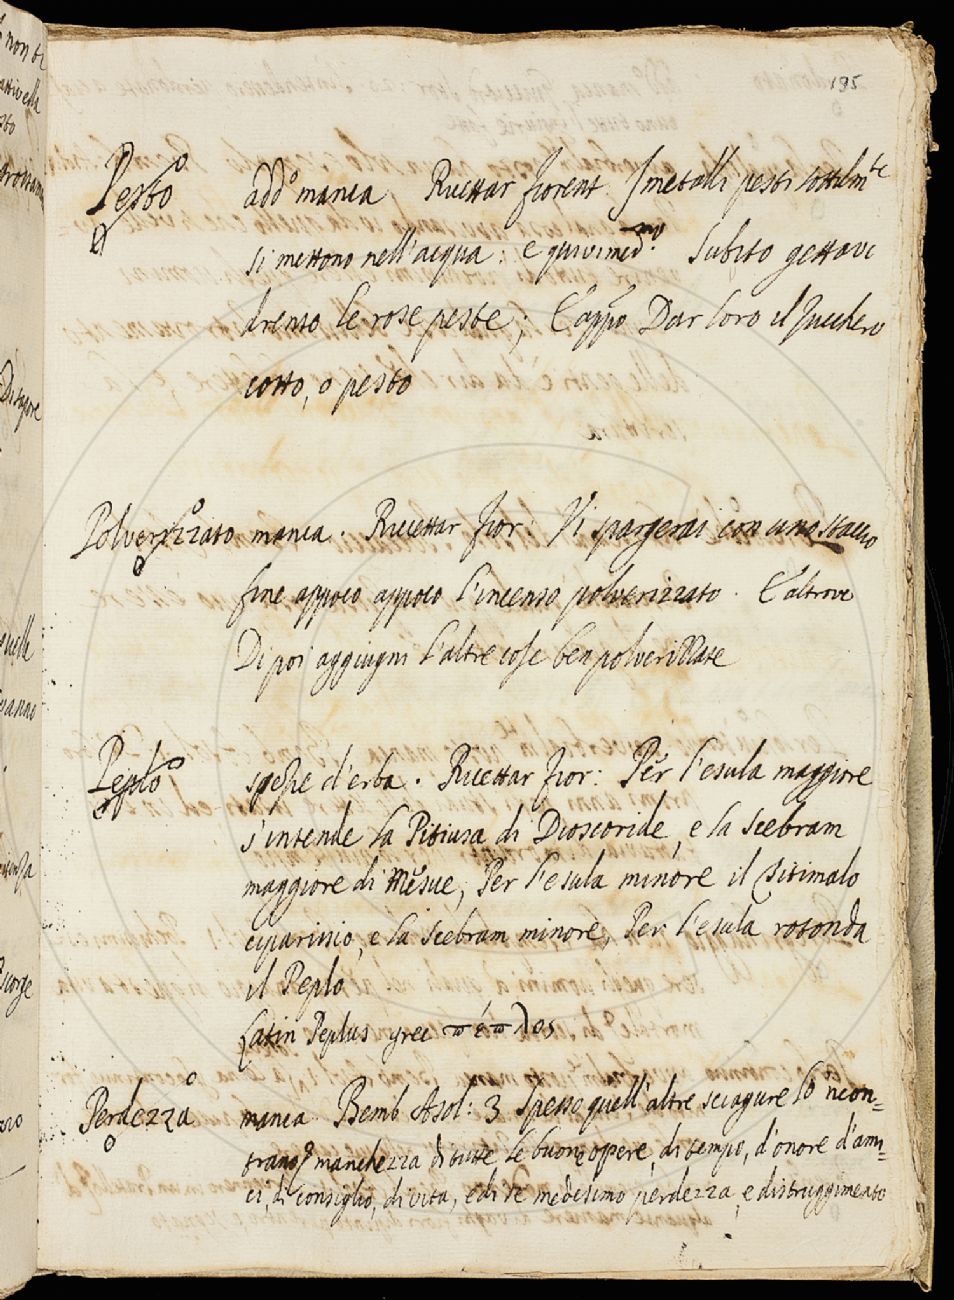 195
Pesto add.o manca Ricettar fiorent. I metalli pesti sottilm.te
si mettono nell'acqua: e quivi med.mo Subito gettavi
drento le rose peste; E app.o Dar loro il Zucchero
cotto, o pesto
Polverizzato manca. Ricettar fior: Vi spargerai con uno staccio
fine appoco appoco l'incenso polverizzato. E altrove
Di poi aggiugni l'altre cose ben polverizzate
Peplo spezie d'erba. Ricettar fior: Per l'esula maggiore
s'intende la Pitiusa di Dioscoride, e la scebram
maggiore di Mesue, Per l'esula minore il Titimalo
ciparissio, e la scebram minore, Per l'esula rotonda
il Peplo
Latin Peplus grec πέπλος
Perdezza manca Bemb Asol: 3 Spesso quell'altre sciagure lo 'ncon=
trano manchezza di tutte le buone opere, di tempo, d'onore d'ami=
ci, di consiglio, di vita, e di se medesimo perdezza, e distruggimento